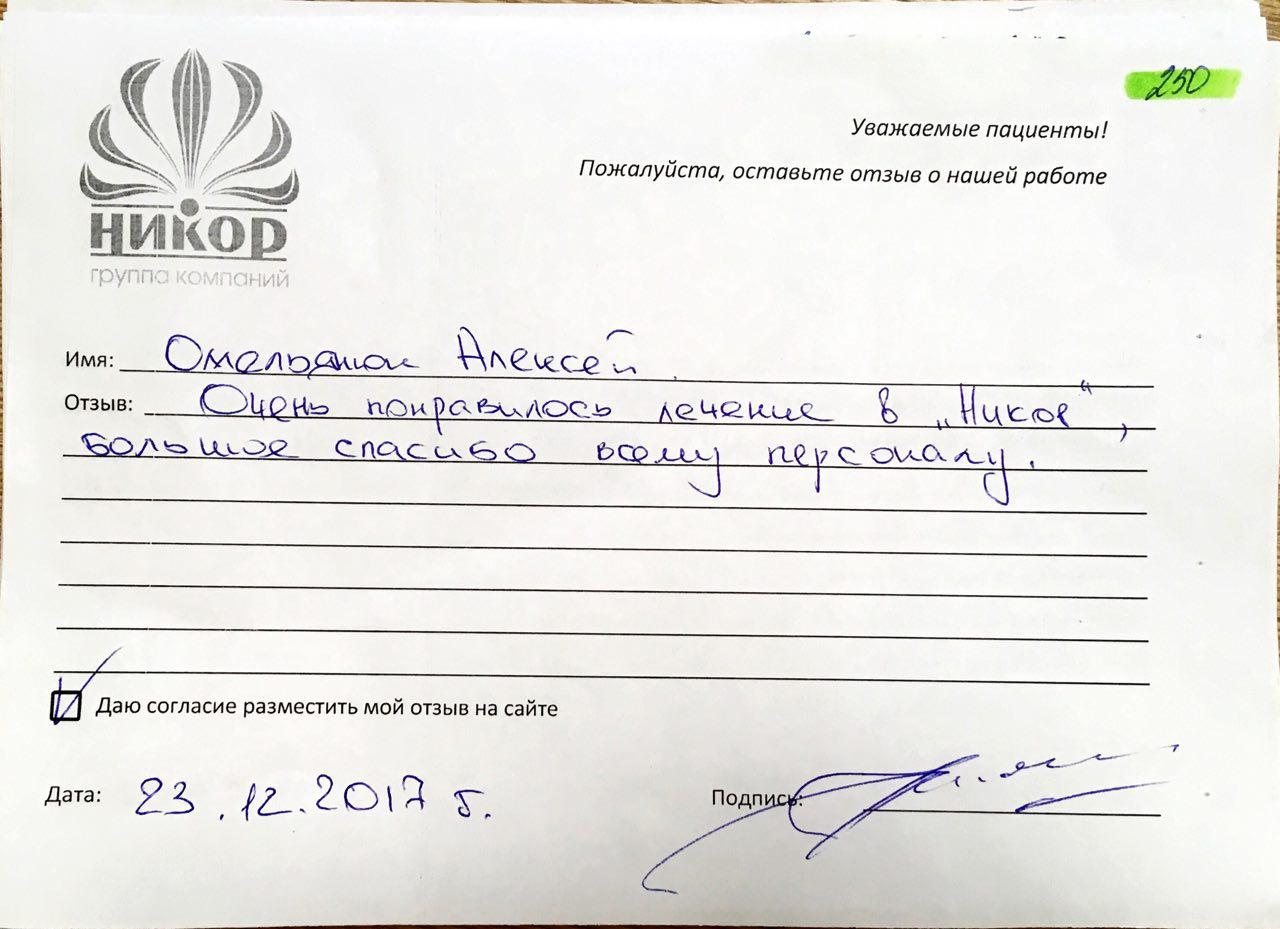 250
Уважаемые пациенты!
Пожалуйста, оставьте отзыв о нашей работе
НИКОР
группа компаний
Имя: Омельянюк Алексей.
Отзыв: Очень понравилось лечение в „Никор“,
большое спасибо всему персоналу.
Даю согласие разместить мой отзыв на сайте
Дата: 23.12.2017 г.
Подпись: